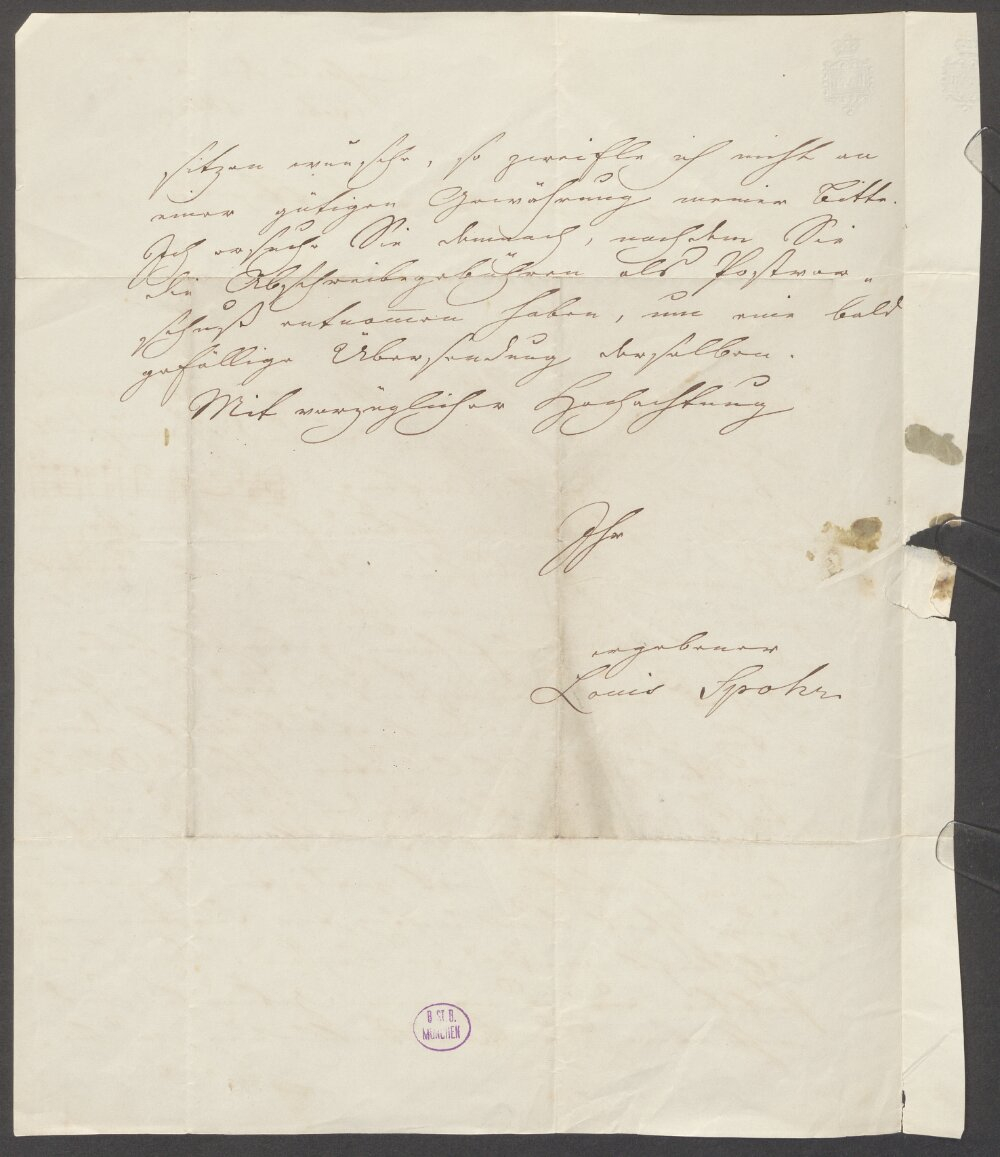 sitzen wünsche, so zweifle ich nicht an
einer gütigen Gewährung meiner Bitte.
Ich ersuche Sie demnach, nachdem Sie
die Abschreibegebühren als Postvor„
schuß entnom̄en haben, um eine bald
gefällige Übersendung derselben.
Mit vorzüglicher Hochachtung
Ihr
ergebener
Louis Spohr.
B. ST. B.
MÜNCHEN